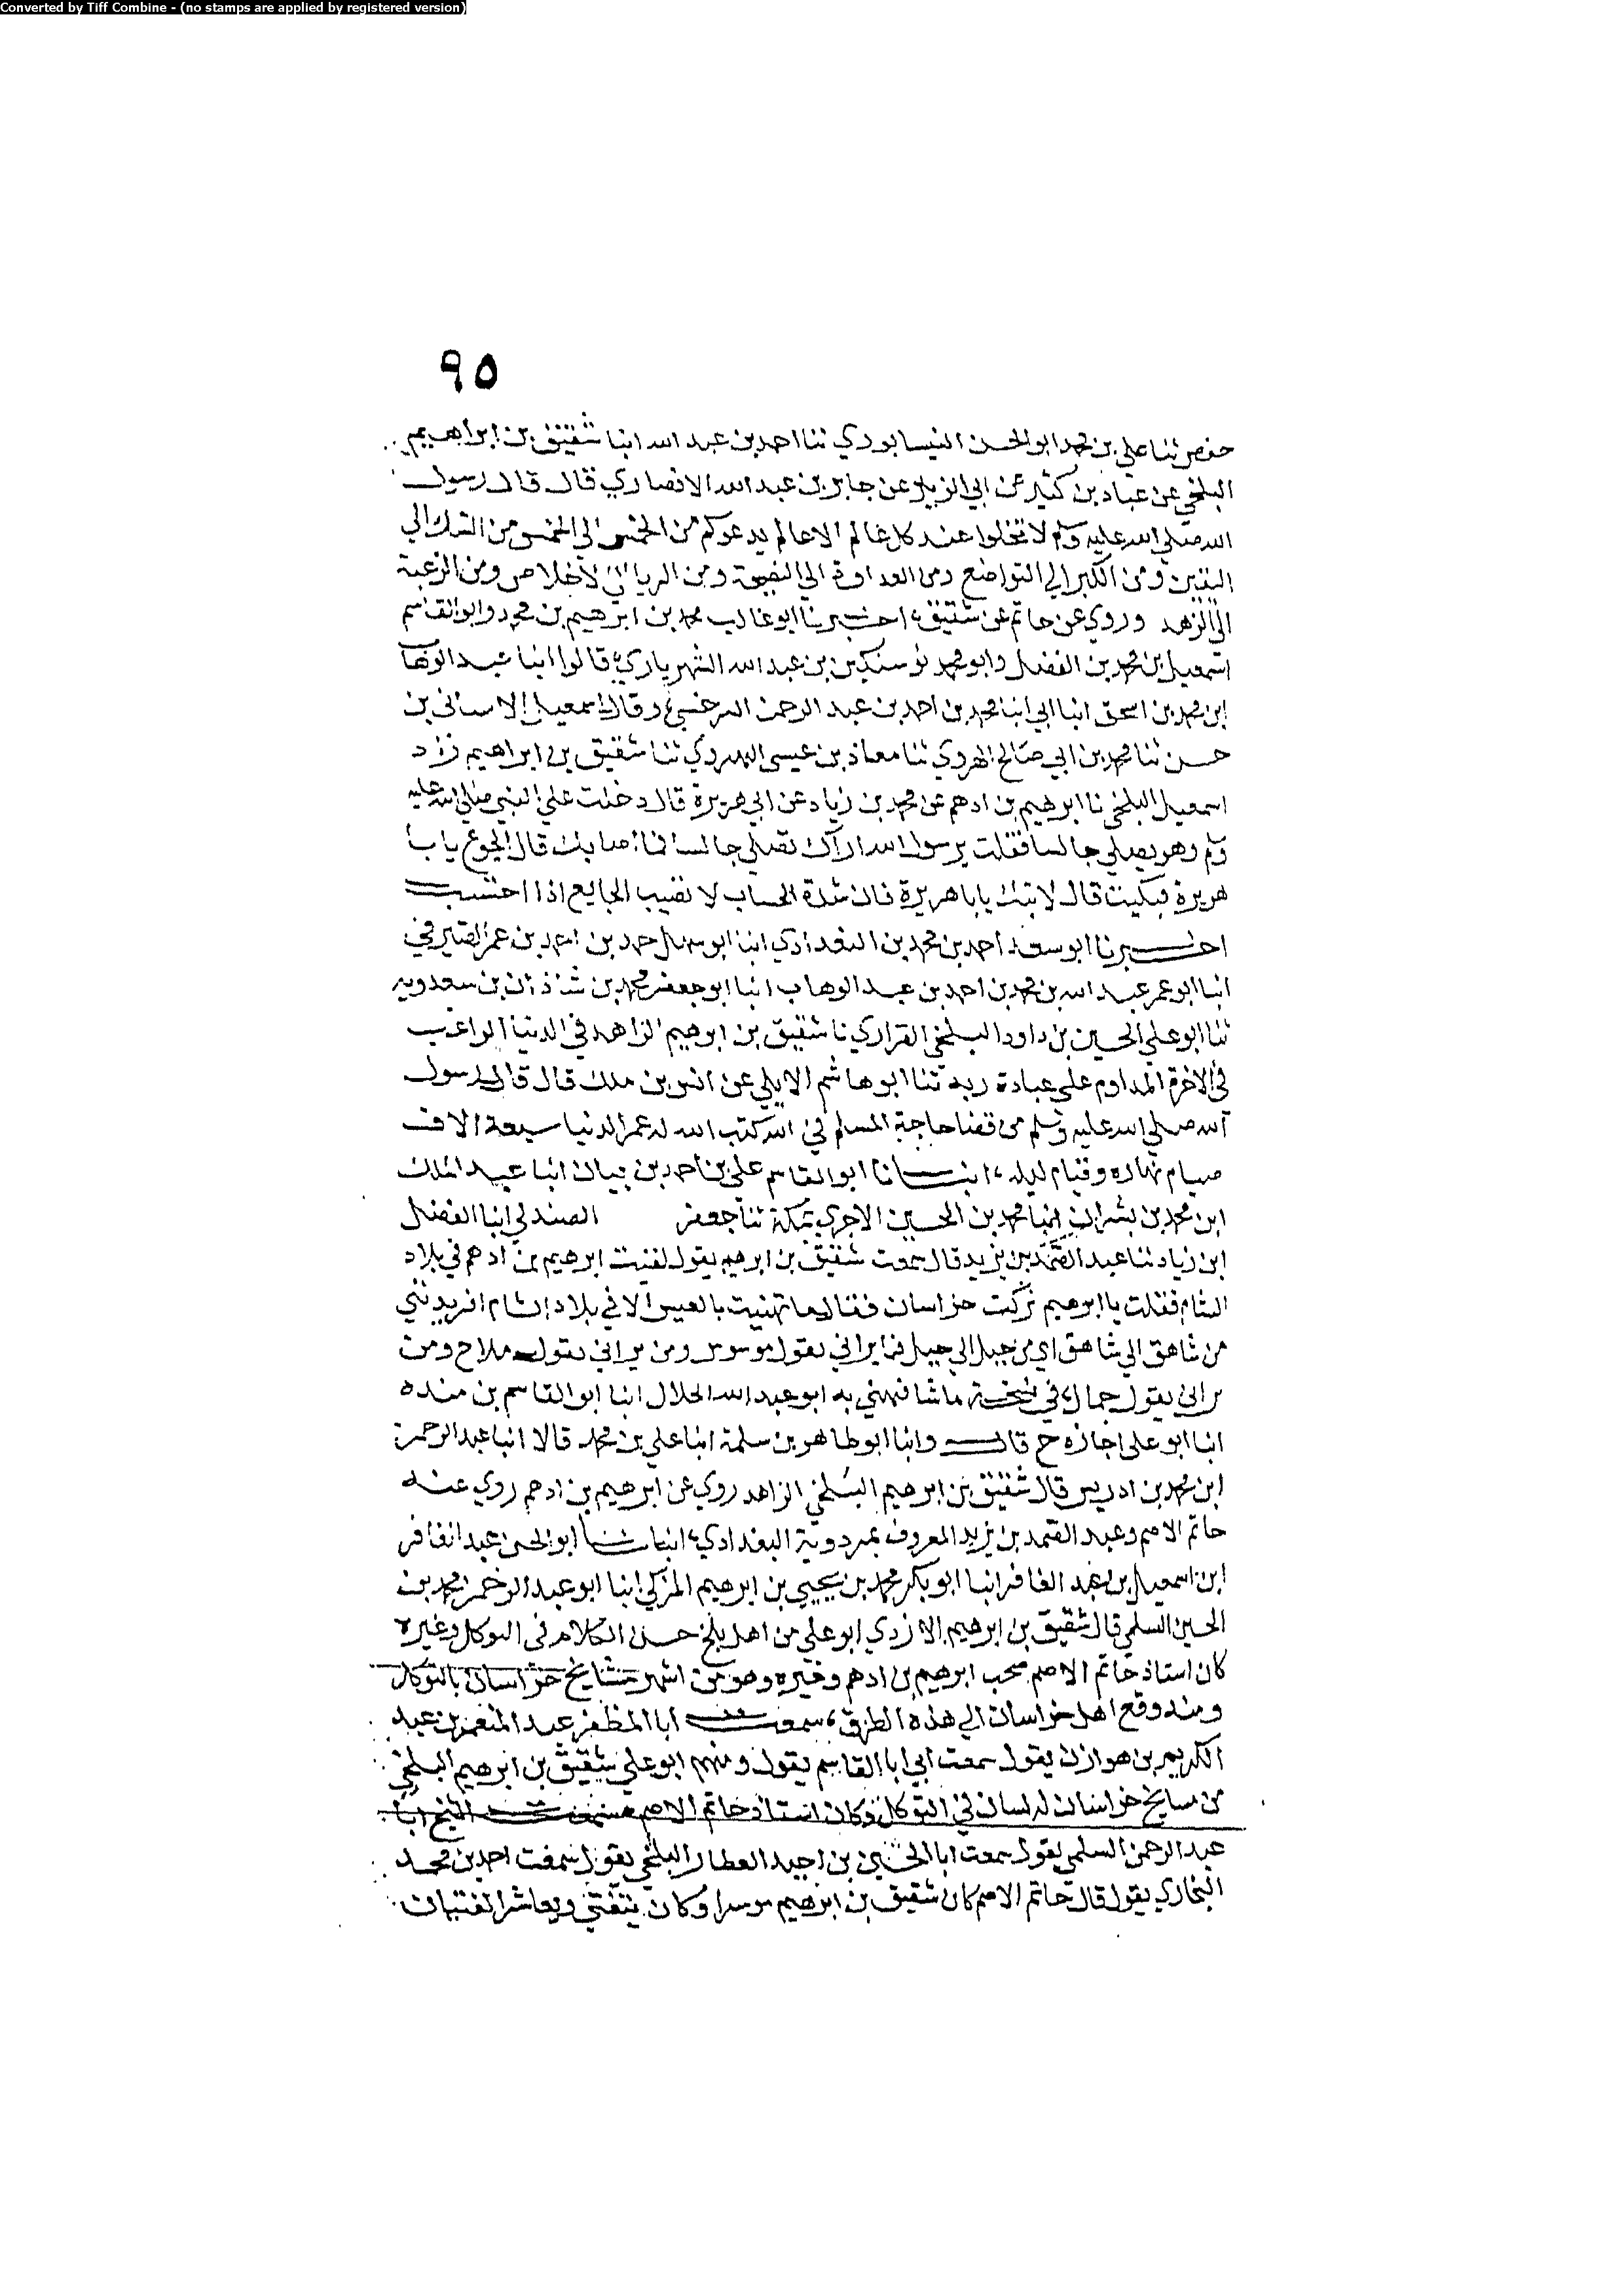 Converted by Tiff Combine - (no stamps are applied by registered version)
٩٥
حفص ثنا علي بن محمد ابو الحسن النيسابوري ثنا احمد بن عبد الله انبا شقيق بن ابراهيم
البلخي عن عباد بن كثير عن ابي الزبير عن جابر بن عبد الله الانصاري قال قال رسول
الله صلى الله عليه وسلم لا تجلسوا عند كل عالم الا عالم يدعوكم من الخمس الى الخمس من الشك الى
اليقين ومن الكبر الى التواضع ومن العداوة الى النصيحة ومن الريا الى الاخلاص ومن الرغبة
الى الزهد وروي عن حاتم عن شقيق، اخبرنا ابو غالب محمد بن ابرهيم بن محمد وابو القاسم
اسمعيل بن محمد بن الفضل وابو محمد نوستكين بن عبد الله الشهرياري قالوا انبا عبد الوهاب
ابن محمد بن اسحق انبا ابي انبا محمد بن احمد بن عبد الرحمن وقال اسمعيل بن
حسن ثنا محمد بن ابي صالح الهروي ثنا معاذ بن عيسى الهروي ثنا شقيق بن ابراهيم زاد
اسمعيل البلخي نا ابرهيم بن ادهم عن محمد بن زياد عن ابي هريرة قال دخلت على النبي صلى الله عليه
وسلم وهو يصلي جالسا فقلت يرسول الله اراك تصلي جالسا فما اصابك قال الجوع يابا
هريرة فبكيت قال لا تبك يابا هريرة فان شدة الحساب لا تصيب الجايع اذا احتسب
اخبرنا ابو سعد احمد بن محمد بن البغدادي انبا ابو سهل حمد بن احمد بن عمر الصيرفي
انبا ابو عمر عبد الله بن محمد بن احمد بن عبد الوهاب انبا ابو جعفر محمد بن شاذان بن سعدويه
ثنا ابو علي الحسين بن داود البلخي نا شقيق بن ابرهيم الزاهد في الدنيا الراغب
في الاخرة المداوم على عبادة ربه ثنا ابو هاشم الايلي عن انس بن ملك قال قال رسول
الله صلى الله عليه وسلم من قضا حاجة المسلم في الله كتب الله له عمر الدنيا سبعة الاف
صيام نهاره وقيام ليله، انبانا ابو القاسم علي بن احمد بن بيان انبا عبد الملك
ابن محمد بن بشران انبا محمد بن الحسين الاجري بمكة ثنا جعفر الصندلي انبا الفضل
ابن زياد ثنا عبد الصمد بن يزيد قال سمعت شقيق بن ابرهيم يقول لقيت ابرهيم بن ادهم في بلاد
الشام فقلت يا ابرهيم تركت خراسان فقال ما تهنيت بالعيش الا في بلاد الشام افر بديني
من شاهق الى شاهق اي من جبل الى جبل فما يراني يقول موسوس ومن يراني يقول ملاح ومن
يراني يقول جمال، في نسخة ما شافهني به ابو عبد الله الخلال انبا ابو القاسم بن منده
انبا ابو علي اجازه ح قال وانبا ابو طاهر بن سلمة انبا علي بن محمد قالا انبا عبد الرحمن
ابن محمد بن ادريس قال شقيق بن ابرهيم البلخي الزاهد روي عن ابرهيم بن ادهم روي عنه
حاتم الاصم وعبد الصمد بن يزيد المعروف بمردوية البغدادي، انبانا ابو الحسن عبد الغافر
ابن اسمعيل بن عبد الغافر انبا ابو بكر محمد بن يحيي بن ابرهيم المزكي انبا ابو عبد الرحمن محمد بن
الحسين السلمي قال شقيق بن ابرهيم الازدي ابو علي من اهل بلخ حسن الكلام في التوكل وغيره
كان استاذ حاتم الاصم صحب ابرهيم بن ادهم وغيره وهو من اشهر مشايخ خراسان بالتوكل
ومنه وقع اهل خراسان الى هذه الطرق، سمعت ابا المظفر عبد المنعم بن عبد
الكريم بن هوازن يقول سمعت ابي ابا القاسم يقول ومنهم ابو علي شقيق بن ابرهيم البلخي
من مشايخ خراسان له لسان في التوكل وكان استاذ حاتم الاصم سمعت الشيخ ابا
عبد الرحمن السلمي يقول سمعت ابا الحسين بن احمد العطار البلخي يقول سمعت احمد بن محمد
البخاري يقول قال حاتم الاصم كان شقيق بن ابرهيم موسرا وكان يتفتى ويعاشر الفتيان